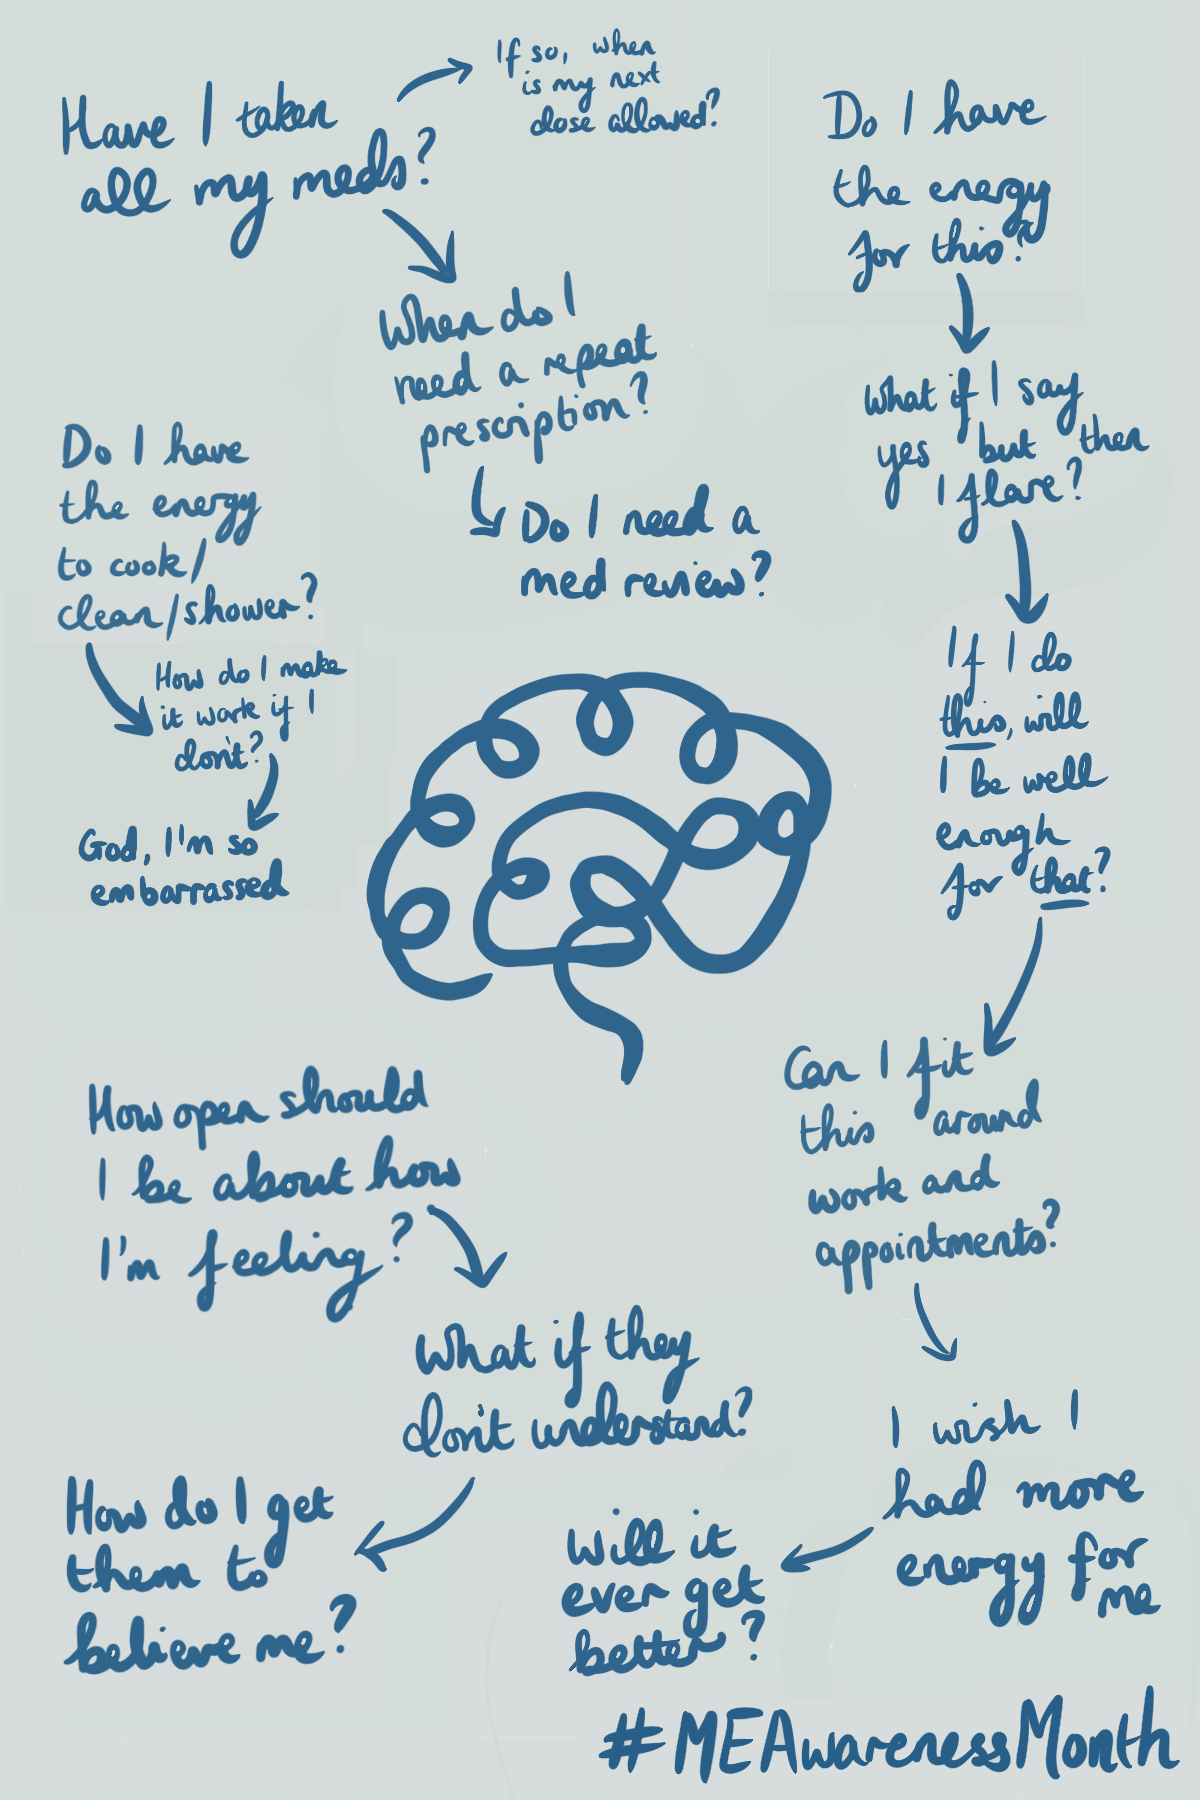 Have I taken
all my meds?
If so, when
is my next
dose allowed?
When do I
need a repeat
prescription?
Do I need a
med review?
Do I have
the energy
to cook/
clean/shower?
How do I make
it work if I
don't?
God, I'm so
embarrassed
Do I have
the energy
for this?
What if I say
yes but then
I flare?
If I do
this, will
I be well
enough
for that?
Can I fit
this around
work and
appointments?
I wish I
had more
energy for
me
Will it
ever get
better?
How open should
I be about how
I'm feeling?
What if they
don't understand?
How do I get
them to
believe me?
#MEAwarenessMonth